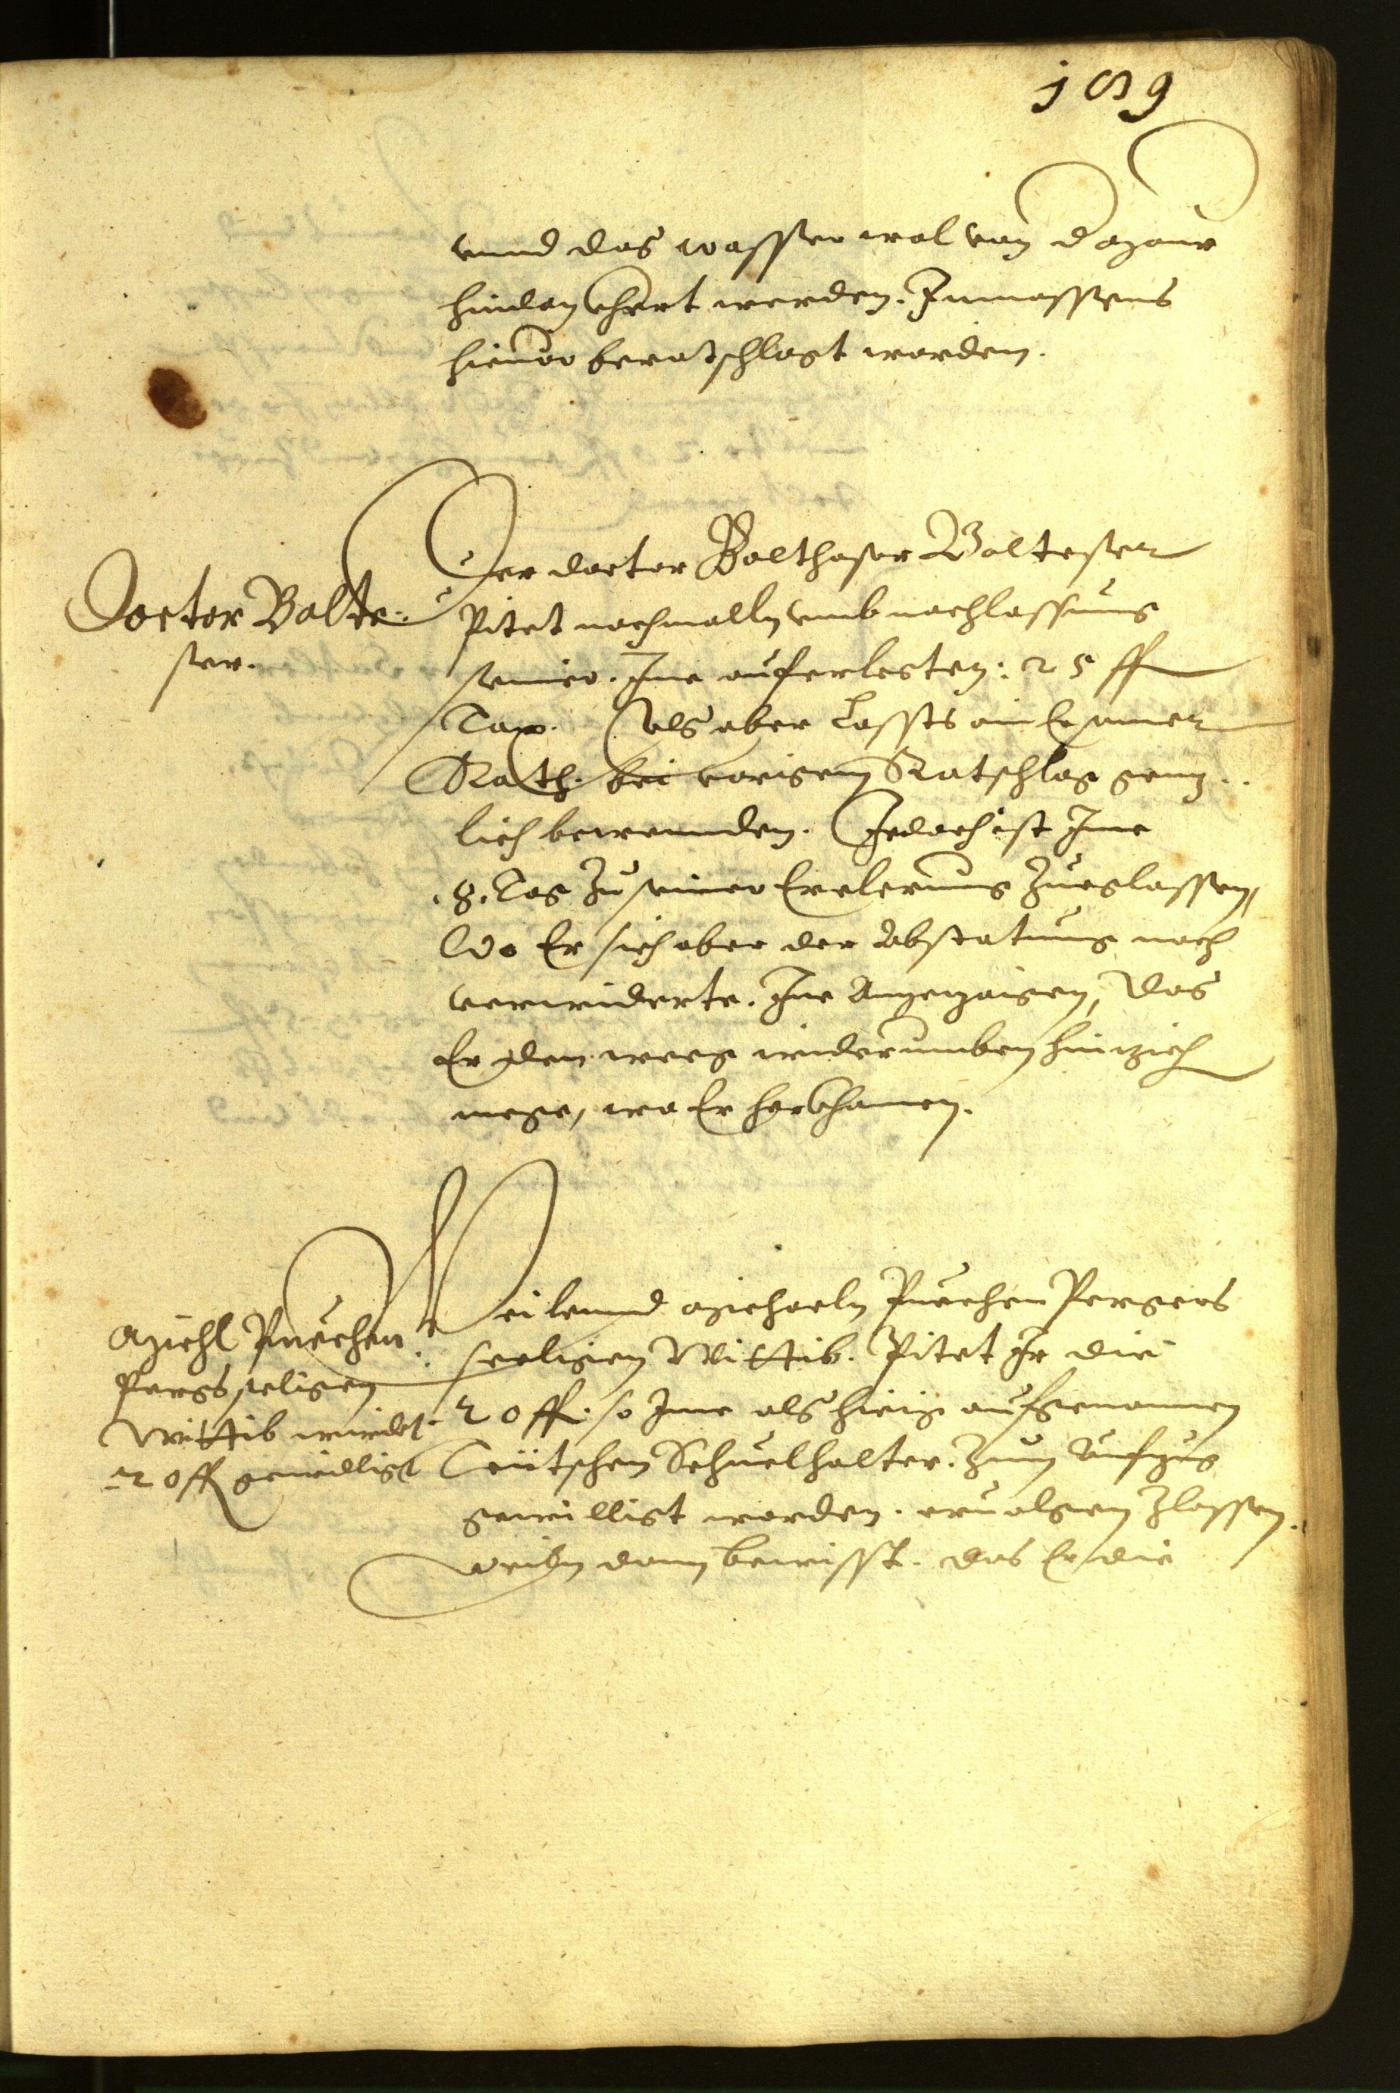 189
vnnd das wasser wol von dazaun
hindan khert werden. Inmassens
hieuor beratschlagt worden.
Doctor Balte-
ser.
Der doctor Balthasar Balteser
Pitet nochmalln vmb nachlassung
seiner. Ime auferlegten: 25 fl
Tax. Als aber Lassts ain Ersamer
Rath. bei vorigem Ratschlag genz-
lich bewennden. Jedoch ist Ime
.8. Tag zu seiner Erclerung Zuegelassen,
Wo Er sich aber der Abstatung noch
verwiderte. Ime Anzezaigen, Das
Er den weeg widerumben hinzieh
mege, wo Er herkhomen.
Michl Puechen-
Pergs seligen
Wittib wirdet
20 fl gewilligt
Weilennd Michaeln Puechen Pergers
seeligen Wittib. Pitet Ir die
20 fl. so Ime als hieig aufgenomnen
Teütschen Schuelhalter. Zum Aufzug
gewilligt worden. eruolgen Zlassen.
weiln dann bewisst. das Er die